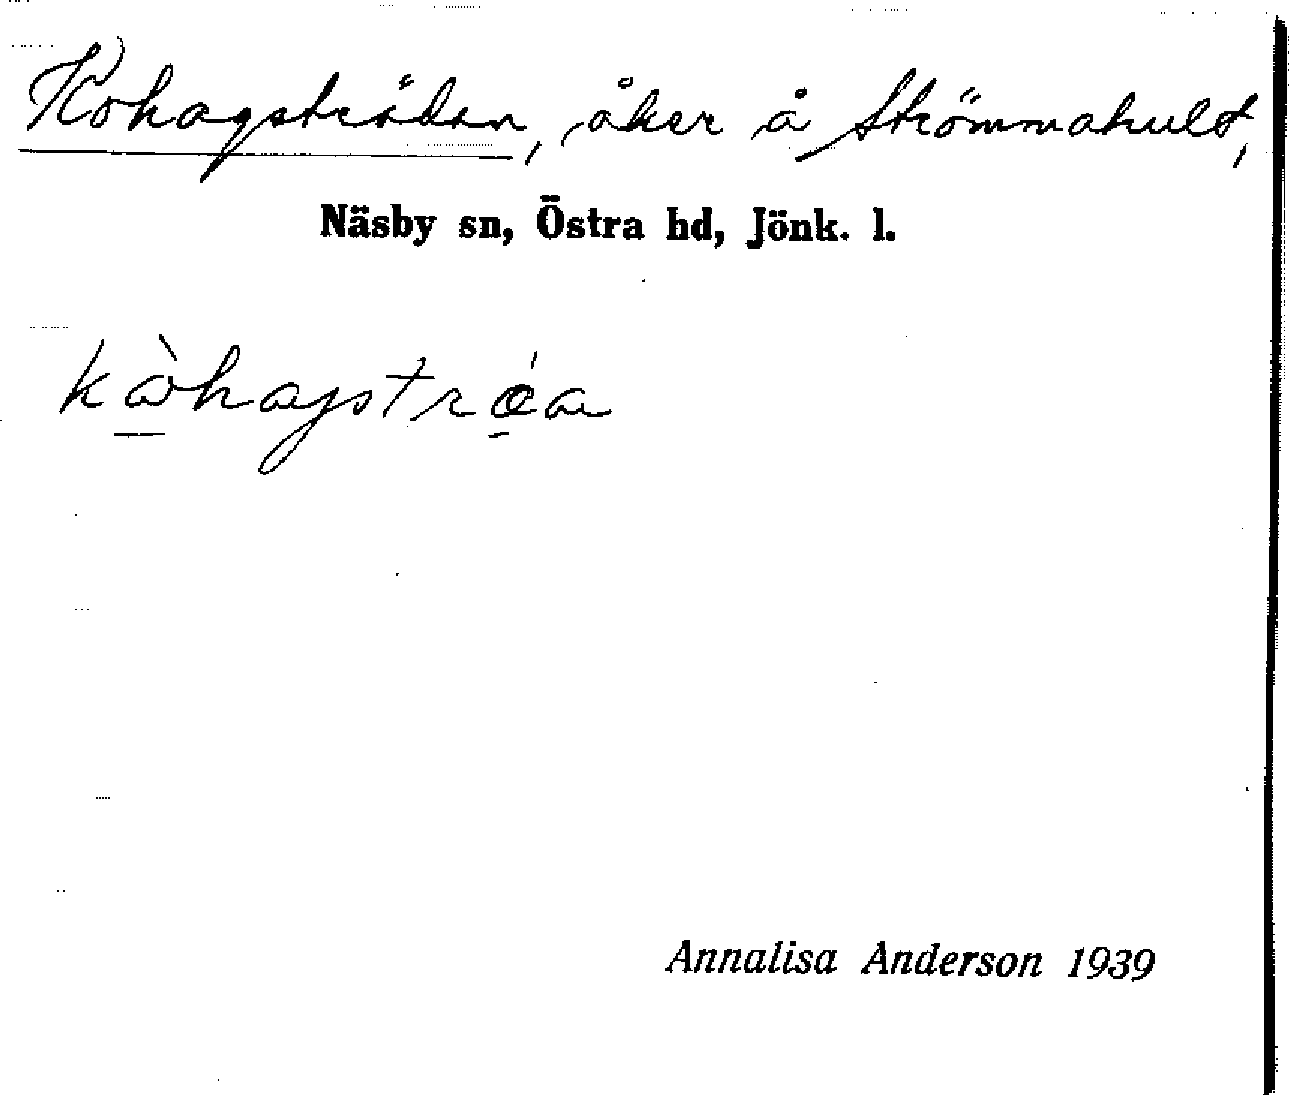 Kohagsträdan, åker å Strömmahult,
Näsby sn, Östra hd, Jönk. l.
kàhagstrǿa
Annalisa Anderson 1939